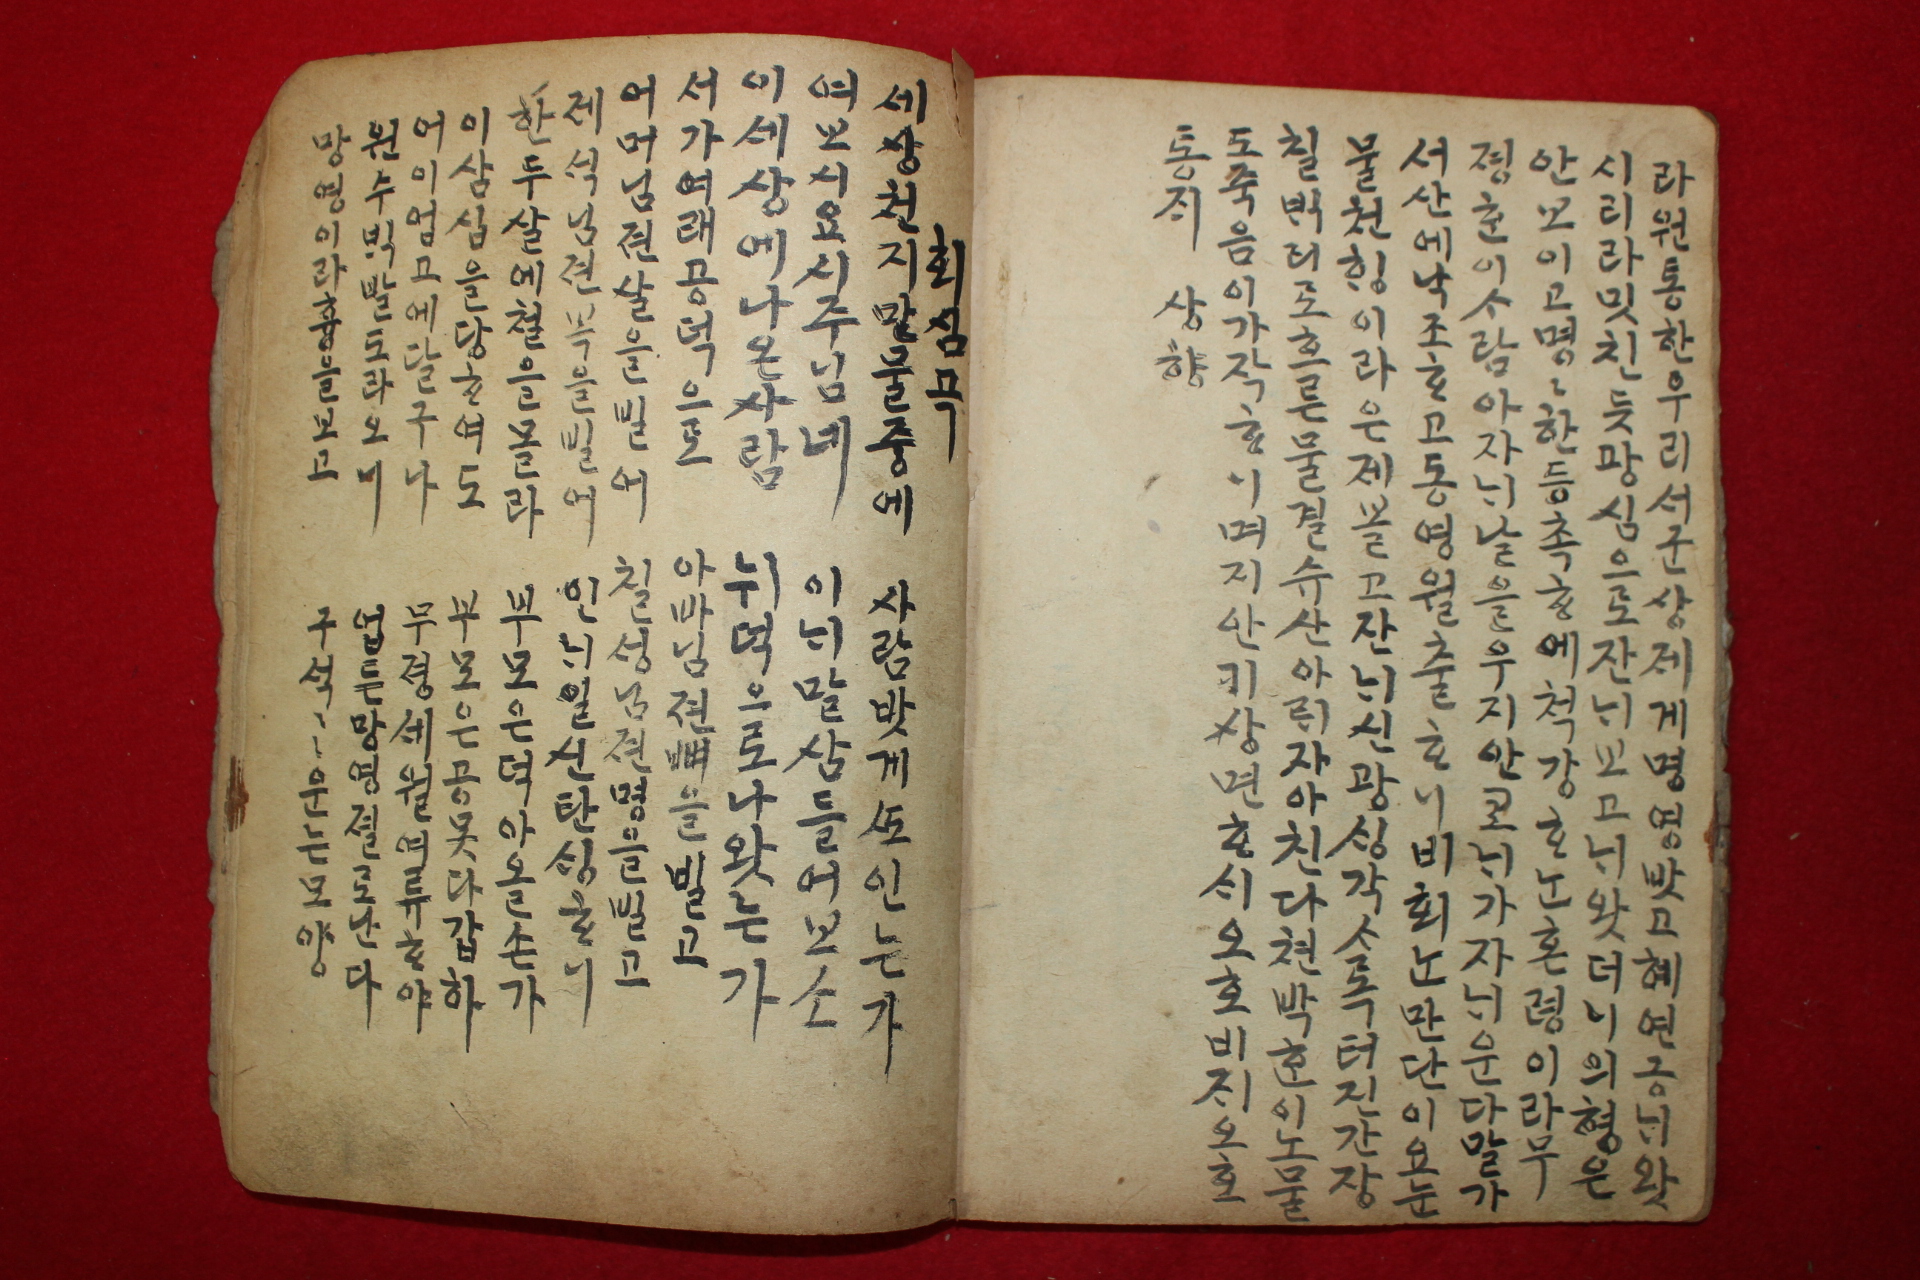 라원통한우리서군상제게명영밧고혜연궁늬왓
시리라밋친듯망심으로잔늬보고늬왓더니의형은
안보이고명〻한등촉ᄒᆞ에척강ᄒᆞᄂᆞᆫ혼령이라무
졍ᄒᆞᆫ이ᄉᆞ람아자늬날을우지안코늬가자늬운다말가
서산에낙조ᄒᆞ고동영월출ᄒᆞ니비회ᄂᆞᆫ만단이요눈
물쳔힝이라은제쏠고잔늬신광싱각ᄉᆞ록터진간장
칠벅터로흐른물결슈산아릐자아친다쳔박ᄒᆞᆫ이눔물
도죽음이가작ᄒᆞ이며지안키상면ᄒᆞ싀오호비ᄌᆡ오호
통ᄌᆡ 상향
회심곡
세상천지말물중에 사람밧게ᄯᅩ인는가
여보시요시주님네 이늬말삼들어보소
이세상에나온사람 뉘덕으로나왓는가
서가여래공덕으로 아바님젼을빌고
어머님젼살을빌어 칠성님젼명을빌고
제석님젼복을빌어 인늬일신탄싱ᄒᆞ니
한두살에철을몰라 부모은덕아올손가
이삼십을당ᄒᆞ여도 부모은공못다갑하
어이업고에달구나 무졍세월여류ᄒᆞ야
원수빅발도라오니 업든망영졀로난다
망영이라흉을보고 구석〻〻운는모양